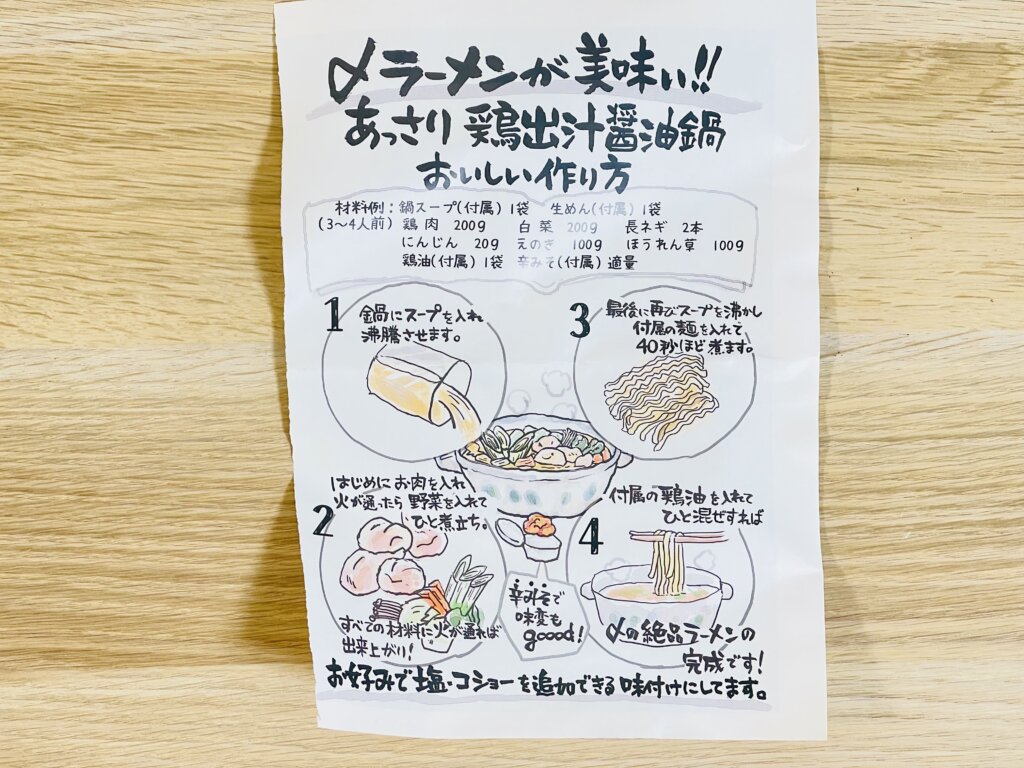 〆ラーメンが美味い!!
あっさり鶏出汁醤油鍋
おいしい作り方
材料例：鍋スープ(付属) 1袋　生めん(付属) 1袋
(3〜4人前) 鶏肉 200g　白菜 200g　長ネギ 2本
にんじん 20g　えのき 100g　ほうれん草 100g
鶏油(付属) 1袋　辛みそ(付属) 適量
1
鍋にスープを入れ
沸騰させます。
2
はじめにお肉を入れ
火が通ったら野菜を入れて
ひと煮立ち。
すべての材料に火が通れば
出来上がり!
3
最後に再びスープを沸かし
付属の麺を入れて
40秒ほど煮ます。
4
付属の鶏油を入れて
ひと混ぜすれば
〆の絶品ラーメンの
完成です!
辛みそで
味変も
goood!
お好みで塩・コショーを追加できる味付けにしてます。